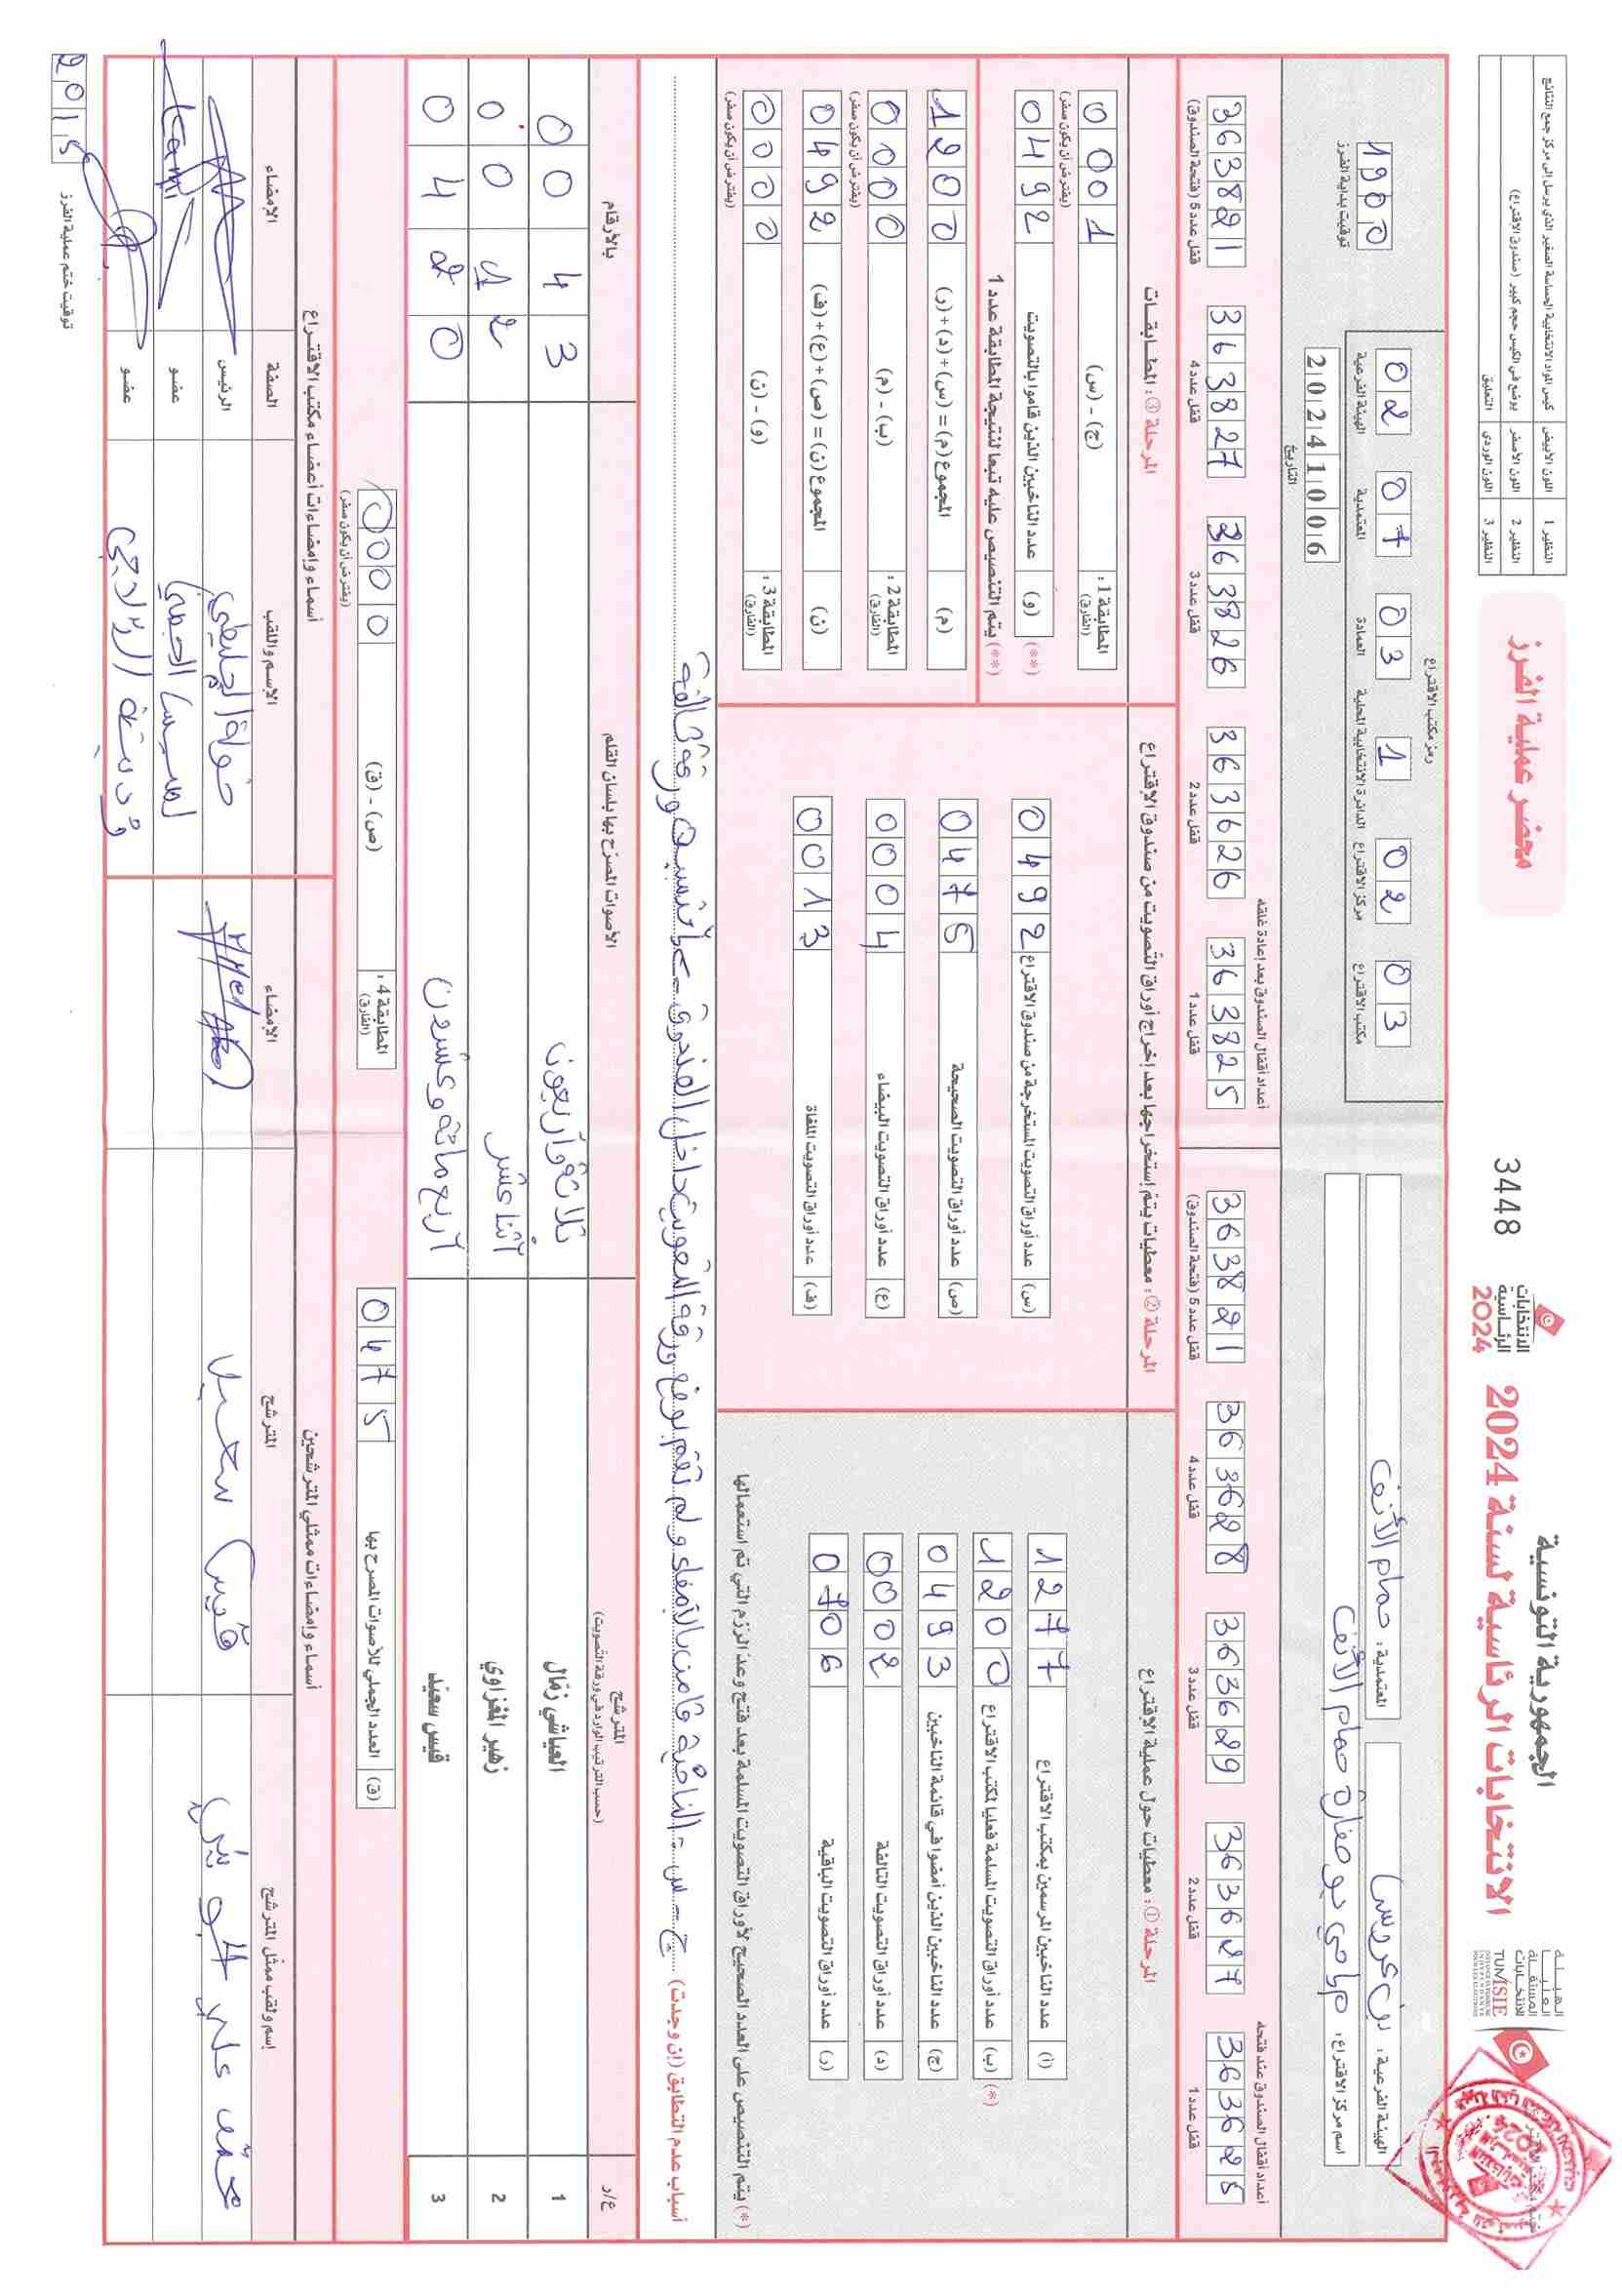 الجمهورية التونسية
الانتخابات الرئاسية لسنة 2024
الهيئة العليا المستقلة للانتخابات
TUNISIE
الانتخابات الرئاسية 2024
3448
محضر عملية الفرز
النظير 1 اللون الأبيض كيس المواد الانتخابية الحساسة الصغير الذي يرسل إلى مركز جمع النتائج
النظير 2 اللون الأصفر يوضع في الكيس حجم كبير (صندوق الاقتراع)
النظير 3 اللون الوردي التعليق
الهيئة الفرعية: بن عروس
المعتمدية: حمام الأنف
اسم مركز الاقتراع:
رمز مكتب الاقتراع
03 مكتب الاقتراع
02 مركز الاقتراع
1 الدائرة الانتخابية المحلية
03 العمادة
07 المعتمدية
02 الهيئة الفرعية
20241006
التاريخ
1900
توقيت بداية الفرز
أعداد أقفال الصندوق عند فتحه
363625 قفل عدد 1
363627 قفل عدد 2
363629 قفل عدد 3
363628 قفل عدد 4
363821 قفل عدد 5 (فتحة الصندوق)
أعداد أقفال الصندوق بعد إعادة غلقه
363825 قفل عدد 1
363626 قفل عدد 2
363826 قفل عدد 3
363827 قفل عدد 4
363821 قفل عدد 5 (فتحة الصندوق)
المرحلة ①: معطيات حول عملية الاقتراع
(أ) عدد الناخبين المرسمين بمكتب الاقتراع 1277
(*) (ب) عدد أوراق التصويت المسلمة فعليا لمكتب الاقتراع 1200
(ج) عدد الناخبين الذين أمضوا في قائمة الناخبين 0493
(د) عدد أوراق التصويت التالفة 0002
(ر) عدد أوراق التصويت الباقية 0706
(*) يتم التنصيص على العدد الصحيح لأوراق التصويت المسلمة بعد فتح وعد الرزم التي تم استعمالها
المرحلة ②: معطيات يتم إستخراجها بعد إخراج أوراق التصويت من صندوق الاقتراع
(س) عدد أوراق التصويت المستخرجة من صندوق الاقتراع 0492
(ص) عدد أوراق التصويت الصحيحة 0475
(ع) عدد أوراق التصويت البيضاء 0004
(ف) عدد أوراق التصويت الملغاة 0013
المرحلة ③: المطابقات
المطابقة 1: (الفارق) (ج) - (س) 0001
(يفترض أن يكون صفر)
(**) (و) عدد الناخبين الذين قاموا بالتصويت 0492
(**) يتم التنصيص عليه تبعا لنتيجة المطابقة عدد 1
(م) المجموع (م) = (س) + (د) + (ر) 1200
المطابقة 2: (الفارق) (ب) - (م) 0000
(يفترض أن يكون صفر)
(ن) المجموع (ن) = (ص) + (ع) + (ف) 0492
المطابقة 3: (الفارق) (و) - (ن) 0000
(يفترض أن يكون صفر)
أسباب عدم التطابق (إن وجدت) ج - س - الناخبة قامت بالإمضاء و لم تقم بوضع ورقة التصويت داخل الصندوق
ع/ر المترشح الأصوات المصرّح بها بلسان القلم بالأرقام
(حسب الترتيب الوارد في ورقة التصويت)
1 العياشي زمّال ثلاثة و أربعون 0043
2 زهير المغزاوي اثنا عشر 0012
3 قيس سعيّد أربع مائة و عشرون 0420
(ق) العدد الجملي للأصوات المصرح بها 0475
المطابقة 4: (الفارق) (ص) - (ق) 0000
(يفترض أن يكون صفر)
أسماء وإمضاءات ممثلي المترشحين
إسم ولقب ممثل المترشح المترشح الإمضاء
قيس سعيد
أسماء وإمضاءات أعضاء مكتب الاقتراع
الإسم واللقب الصفة الإمضاء
الرئيس
عضو
عضو
2015
توقيت ختم عملية الفرز